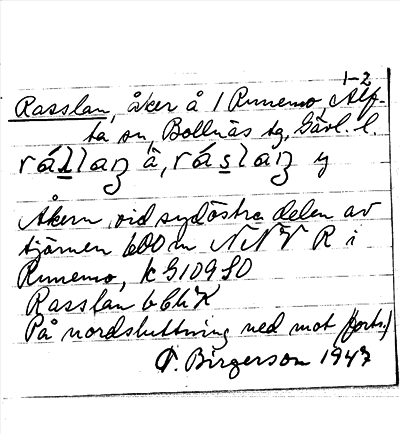 1-2
Rasslan, åker å 1 Runemo, Alf-
ta sn, Bollnäs tg, Gävl. l.
Åkern vid sydöstra delen av
tjärnen 600 m NNV R i
Runemo, k G10980
Rasslan
På nordsluttning ned mot (forts.)
Birgerson 1947